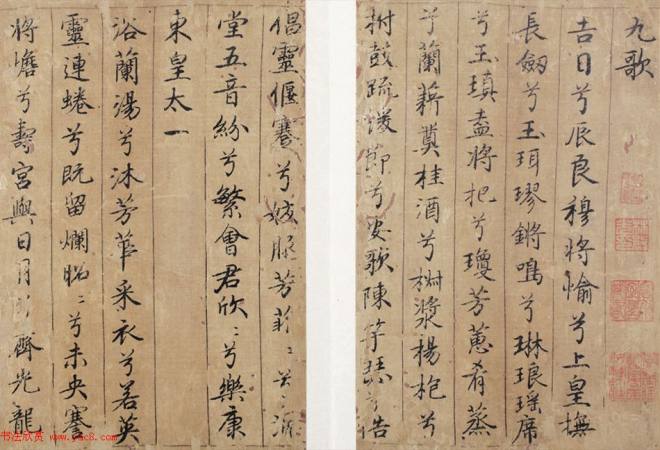 九歌
吉日兮辰良穆將愉兮上皇撫
長劔兮玉珥璆鏘鳴兮琳琅瑶席
兮玉瑱盍將把兮瓊芳蕙肴蒸
兮蘭藉奠桂酒兮椒漿揚枹兮
拊鼓疏緩節兮安歌陳竽瑟兮浩
倡靈偃蹇兮姣服芳菲〻兮滿
堂五音紛兮繁會君欣〻兮樂康
東皇太一
浴蘭湯兮沐芳華采衣兮若英
靈連蜷兮既留爛昭〻兮未央謇
將憺兮壽宮與日月兮齊光龍
书法欣赏 www.yac8.com